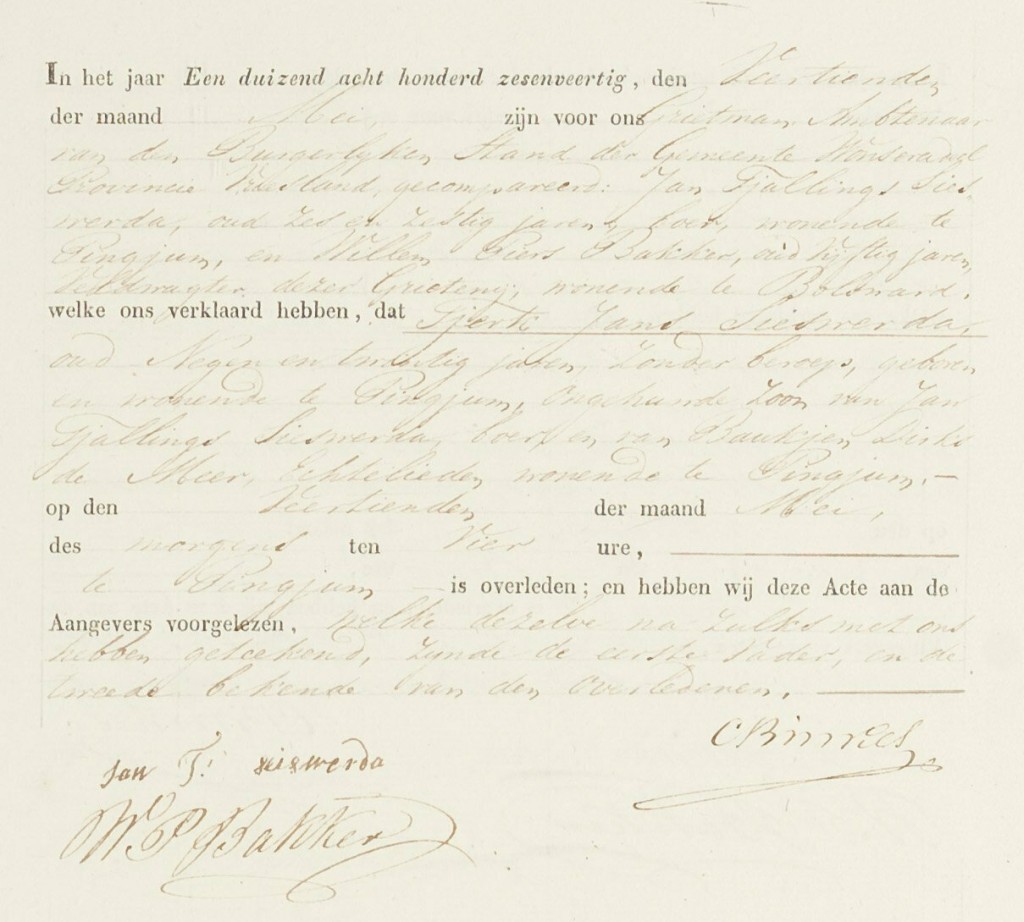 In het jaar Een duizend acht honderd zesenveertig, den Veertienden
der maand Mei, zijn voor ons Grietman Ambtenaar
van den Burgerlyken Stand der Gemeente Wonseradeel
Provincie Vriesland, gecompareerd: Jan Tjallings Sies
werda, oud zes en zestig jaren, boer, wonende te
Pingjum, en Willem Piers Bakker, oud vyftig jaren,
Veldwagter dezer Grieteny, wonende te Bolsward,
welke ons verklaard hebben, dat Tjerk Jans Sieswerda,
oud Negen en twintig jaren, zonder beroep, geboren
en wonende te Pingjum, Ongehuwde zoon van Jan
Tjallings Sieswerda, boer, en van Baukjen Dirks
de Meer, Echtelieden wonende te Pingjum, —
op den Veertienden der maand Mei,
des morgens ten Vier ure,
te Pingjum is overleden; en hebben wij deze Acte aan de
Aangevers voorgelezen, welke dezelve na zulks met ons
hebben geteekend, zynde de eerste Vader, en de
tweede bekende van den Overledenen.
jan T. sieswerda
W P Bakker